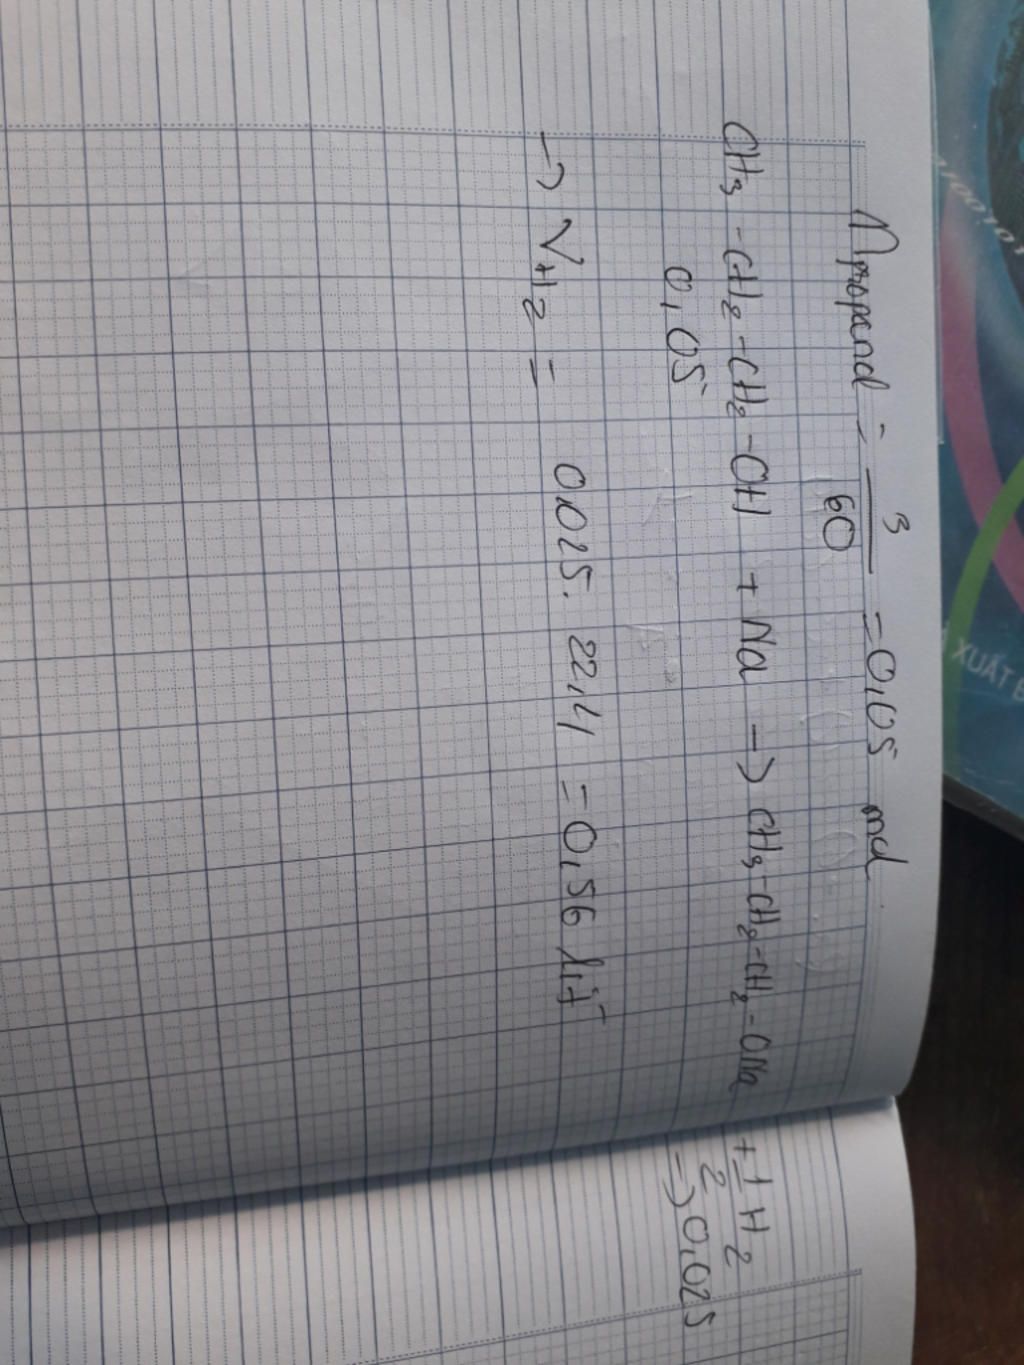 3
n propanol = ── = 0,05 mol
60
CH3 - CH2 - CH2 - OH + Na → CH3 - CH2 - CH2 - ONa + 1/2 H2
0,05 → 0,025
→ VH2 = 0,025. 22,4 = 0,56 lít
XUẤT B